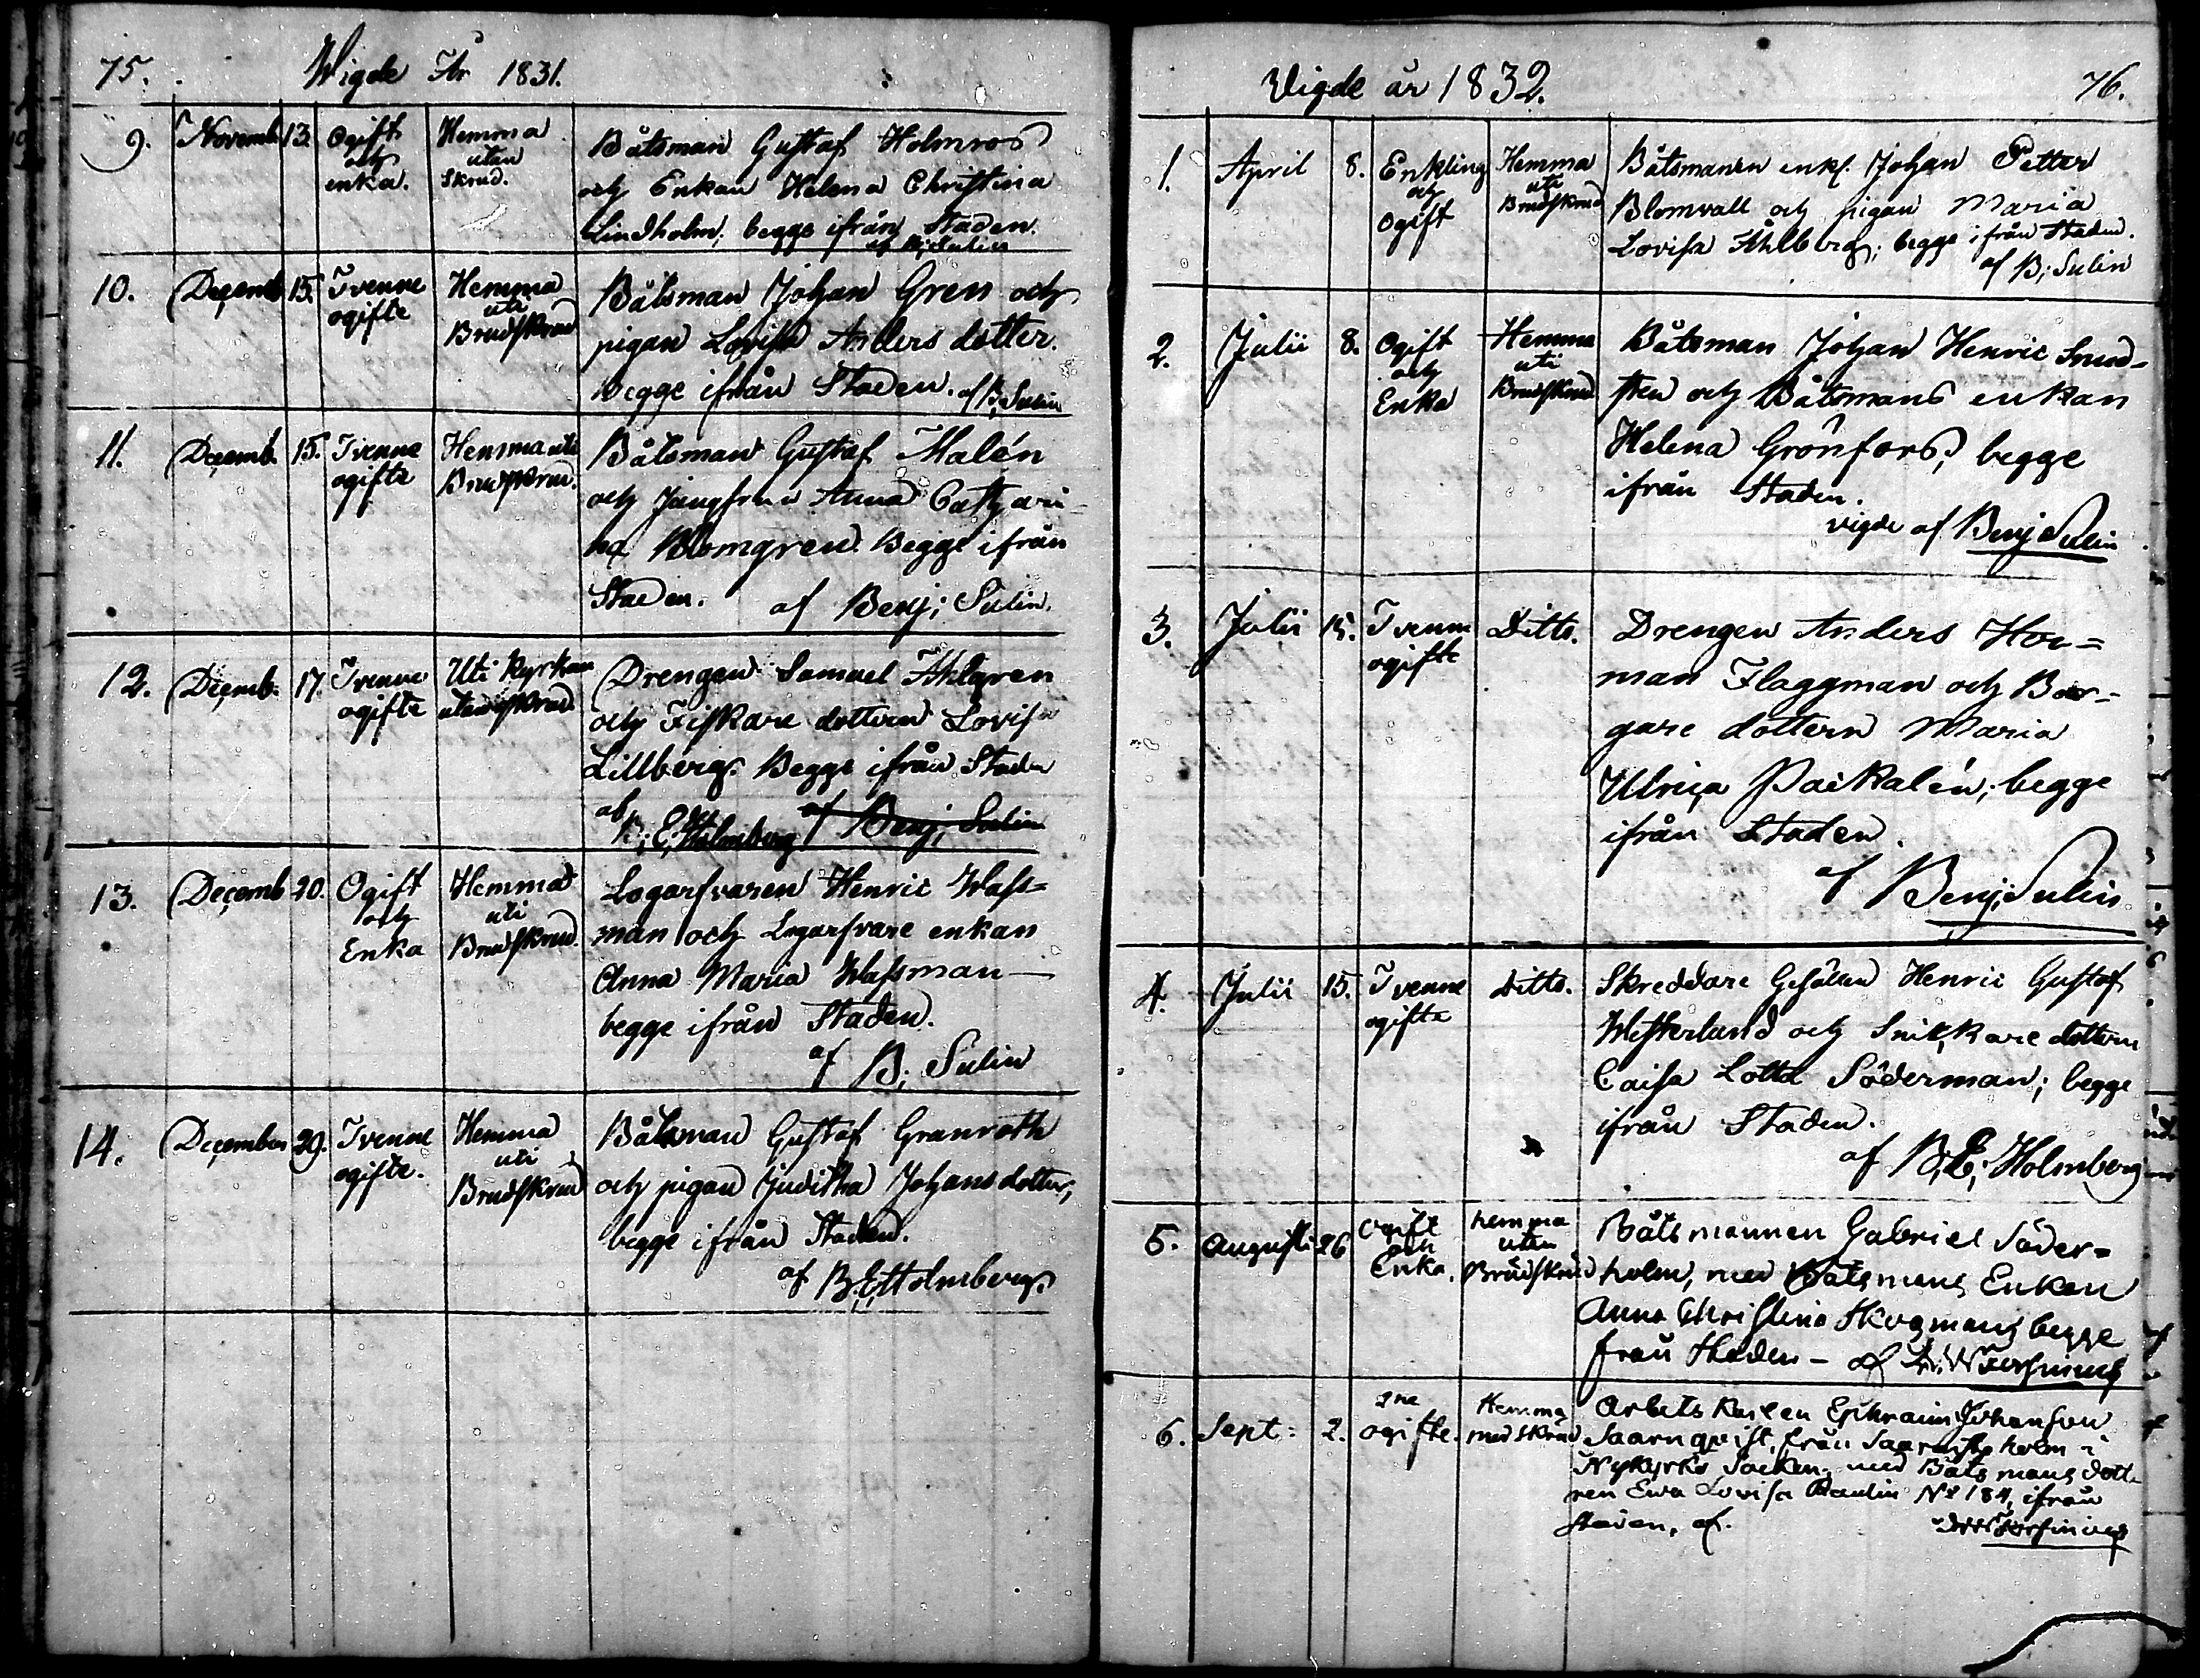 75.
Wigde År 1831.
9. Novemb 13. Ogift och enka. Hemma utan Skrud. Båtsman Gustaf Holmros
och Enkan Helena Christina
Lindholm, begge ifrån Staden.
af B; Sulin
10. Decemb 15. Tvenne ogifte Hemma uti Brudskrud Båtsman Johan Gren och
pigan Lovisa Anders dotter.
Begge ifrån Staden. af B; Sulin
11. Decemb. 15. Tvenne ogifte Hemma uti Brudskrud. Båtsman Gustaf Malén
och Jungfrun Anna Cathari
na Blomgren. Begge ifrån
Staden. af Benj; Sulin.
12. Decemb. 17. Tvenne ogifte Uti Kyrkan utan skrud Drengen Samuel Ahlgren
och Fiskare dottren Lovisa
Lillberg. Begge ifrån Staden
af B; E; Holmberg af Benj; Sulin
13. Decemb 20. Ogift och Enka Hemma uti Brudskrud. Logarfvaren Henric Wass=
man och Logarfvare enkan
Anna Maria Wassman —
begge ifrån Staden.
af B; Sulin
14. December 29. Tvenne ogifte. Hemma uti Brudskrud Båtsman Gustaf Granroth
och pigan Juditha Johansdotter,
begge ifrån Staden.
af B; E; Holmberg.
Vigde år 1832.
76.
1. April 8. Enkling och Ogift Hemma uti Brudskrud Båtsmannen enkl. Johan Petter
Blomvall och pigan Maria
Lovisa Åhlberg; begge ifrån Staden.
af B; Sulin
2. Julii 8. Ogift och Enka Hemma uti Brudskrud Båtsman Johan Henric Sund-
sten och Båtsmans enkan
Helena Grönfors, begge
ifrån Staden.
vigde af Benj Sulin
3. Julii 15. Tvenne ogifte Ditto. Drengen Anders Her=
man Flaggman och Bor-
gare dottern Maria
Ulrica Paikalén; begge
ifrån Staden.
af Benj; Sulin
4. Julii 15. Tvenne ogifte Ditto. Skreddare Gesällen Henric Gustaf
Westerlund och Snikkare dottern
Caisa Lotta Söderman; begge
ifrån Staden.
af B; E; Holmberg
5. Augusti 26 Ogift och Enka. hemma utan Brudskrud Båtsmannen Gabriel Söder=
holm, med Båtsmans Enkan
Anna Christina Skogman, begge
från Staden - af
6. Sept: 2. 2ne ogifte. Hemma med Skrud Arbets Karlen Ephraim Johansson
Saarnqvist, från holm i
Nykyrko Socken, med Båtsmans dott-
ren Ewa Lovisa Paulin No 184, ifrån
staden, af.